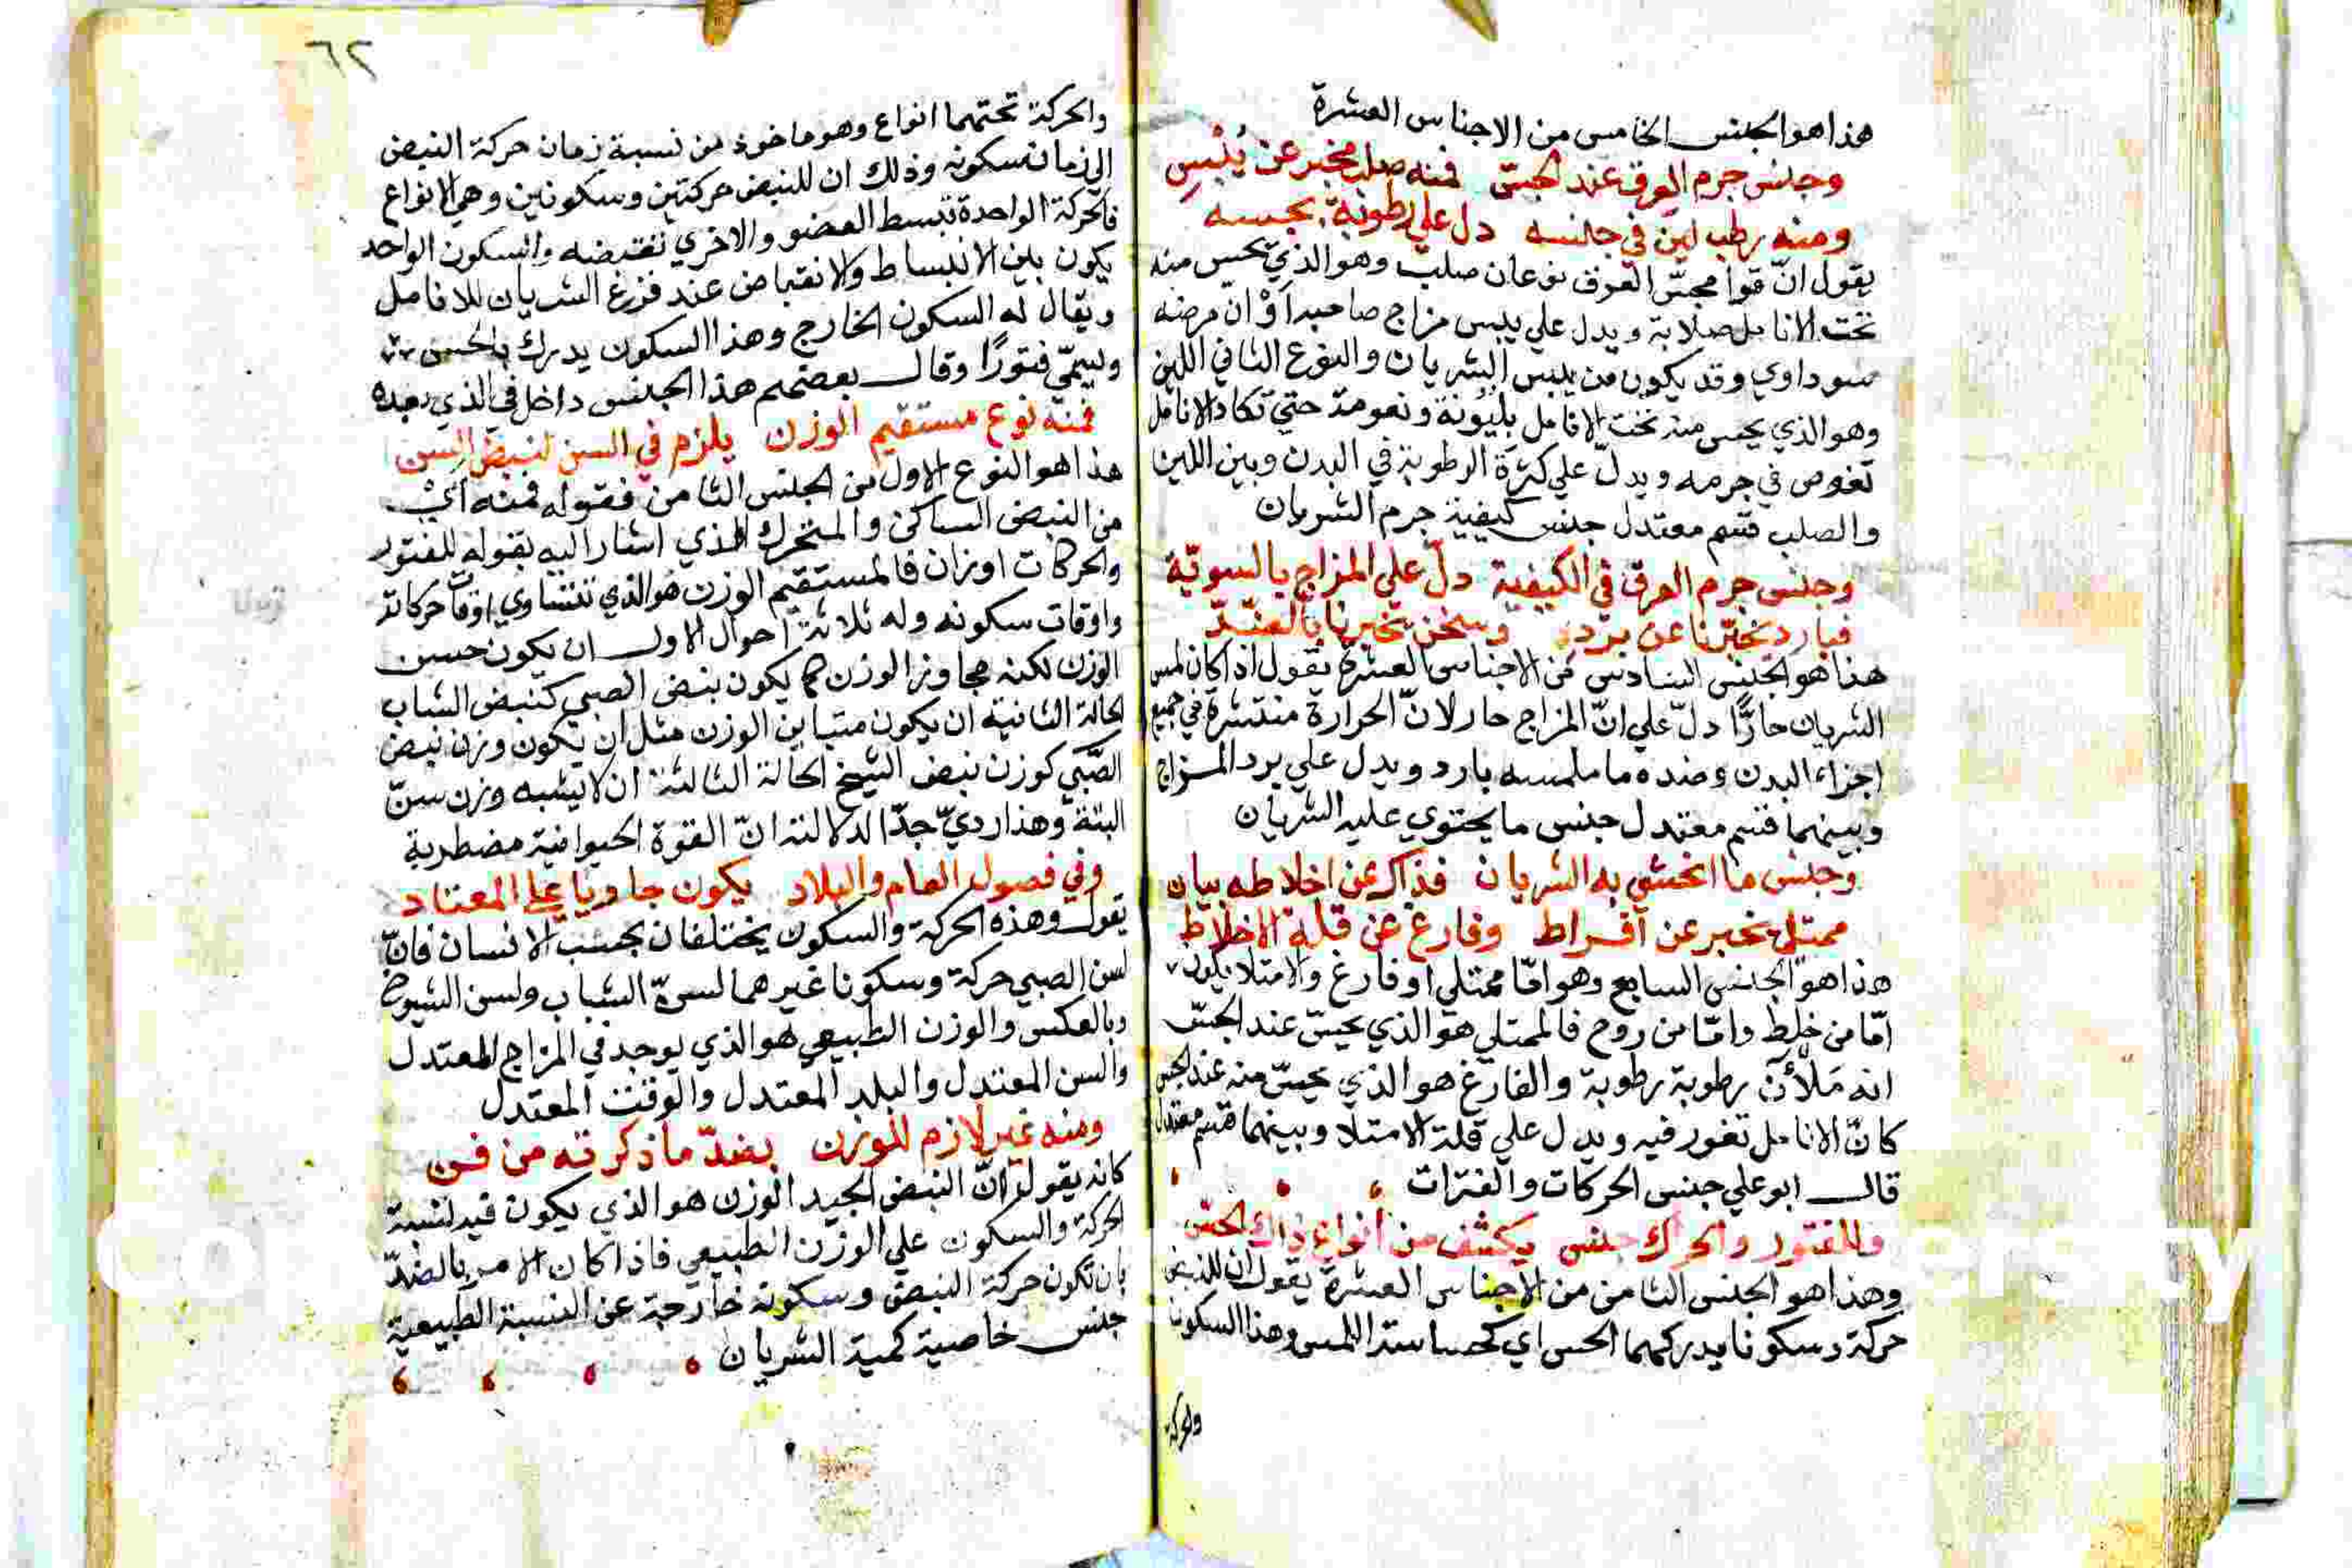 هذا هو الجنس الخامس من الاجناس العشرة
وجنس جرم العرق عند الجسّ فمنه صلب مخبر عن يُبْسِ
ومنه رطب لين في جانسه دل علي رطوبة بحبسه
يقول انّ قوام مجسّ العرق نوعان صلب وهو الذي يحس منه
تحت الانامل صلابة ويدل علي يبس مزاج صاحبه اَوْ انّ مرضه
سوداوي وقد يكون من يبس الشريان والنوع الثاني اللين
وهو الذي يحس منه تحت الانامل بليُونة ونعومة حتي تكاد الانامل
تغوص في جرمه ويدلّ علي كثرة الرطوبة في البدن وبين اللين
والصلب قسم معتدل جنس كيفية جرم الشريان
وجنس جرم العرق في الكيفية دلّ علي المزاج بالسويّة
فبارد تخبّرنا عن برد وسخن تخبرنا بالضدّ
هذا هو الجنس السادس من الاجناس العشرة يقول اذا كان لمس
الشريان حارًّا دلّ علي انّ المزاج حار لانّ الحرارة منتشرة في جميع
اجزاء البدن وضده ما ملمسه بارد ويدل علي برد المزاج
وبينهما قسم معتدل جنس ما يحتوي عليه الشريان
وجنس ما انحشي به الشريان فذاكر عن اخلاطه بيان
ممتلي يخبر عن افراط وفارغ عن قلة الاخلاط
هذا هو الجنس السابع وهو امّا ممتلي او فارغ والامتلا يكون
امّا من خلط وامّا من روح فالممتلي هو الذي يحسّ عند الجسّ
انه مَلْأنّ رطوبة رطوبة والفارغ هو الذي يحسّ منه عند الجس
كانّ الانامل تغور فيه ويدل علي قلة الامتلا وبينهما قسم معتدل
قال ابو علي جنس الحركات والفترات
وللفتور والحراك جنس يكشف من انواع ذاك الحسّ
وهذا هو الجنس الثامن من الاجناس العشرة يقول ان للنبض
حركة وسكونا يدركهما الحس اي كحساسة اللمس وهذا السكون
والحركة
٦٢
والحركة تحتهما انواع وهو ماخوذ من نسبة زمان حركة النبض
الي زمان سكونه وذلك ان للنبض حركتين وسكونين وهي الانواع
فالحركة الواحدة تبسط العضو والاخري تقبضه والسكون الواحد
يكون بين الانبساط والانقباض عند قرع الشريان للانامل
ويقال له السكون الخارج وهذا السكون يدرك بالحس
ويسمّي فتورًا وقال بعضهم هذا الجنس داخل في الذي بعده
فمنه نوع مستقيم الوزن يلزم في السن لنبض السن
هذا هو النوع الاول من الجنس الثامن فقوله فمنه اي
من النبض الساكن والمتحرك الذي اشار اليه بقوله للفتور
والحركات اوزان فالمستقيم الوزن هو الذي تتساوي اوقات حركاته
واوقات سكونه وله ثلاثة احوال الاول ان يكون حسن
الوزن لكنه مجاوز الوزن كما يكون نبض الصبي كنبض الشاب
الحالة الثانية ان يكون متباين الوزن مثل ان يكون وزن نبض
الصّبي كوزن نبض الشيخ الحالة الثالثة ان لا يشبه وزن سنّ
البتة وهذا رديّ جدّا لدلالته انّ القوة الحيوانية مضطربة
وفي فصول العام والبلاد يكون جاويا علي المعتاد
يقول وهذه الحركة والسكون يختلفان بحسب الانسان فانّ
لسن الصبي حركة وسكونا غير هما لسنّ الشباب ولسن الشيوخ
وبالعكس والوزن الطبيعي هو الذي يوجد في المزاج المعتدل
والسن المعتدل والبلد المعتدل والوقت المعتدل
ومنه غير لازم للوزن بضدّ ما ذكرته من فن
كانه يقول انّ النبض الجيد الوزن هو الذي يكون فيه نسبة
الحركة والسكون علي الوزن الطبيعي فاذا كان الامر بالضدّ
بان تكون حركة النبض وسكونه خارجة عن النسبة الطبيعية
جنس خاصية كمية الشريان